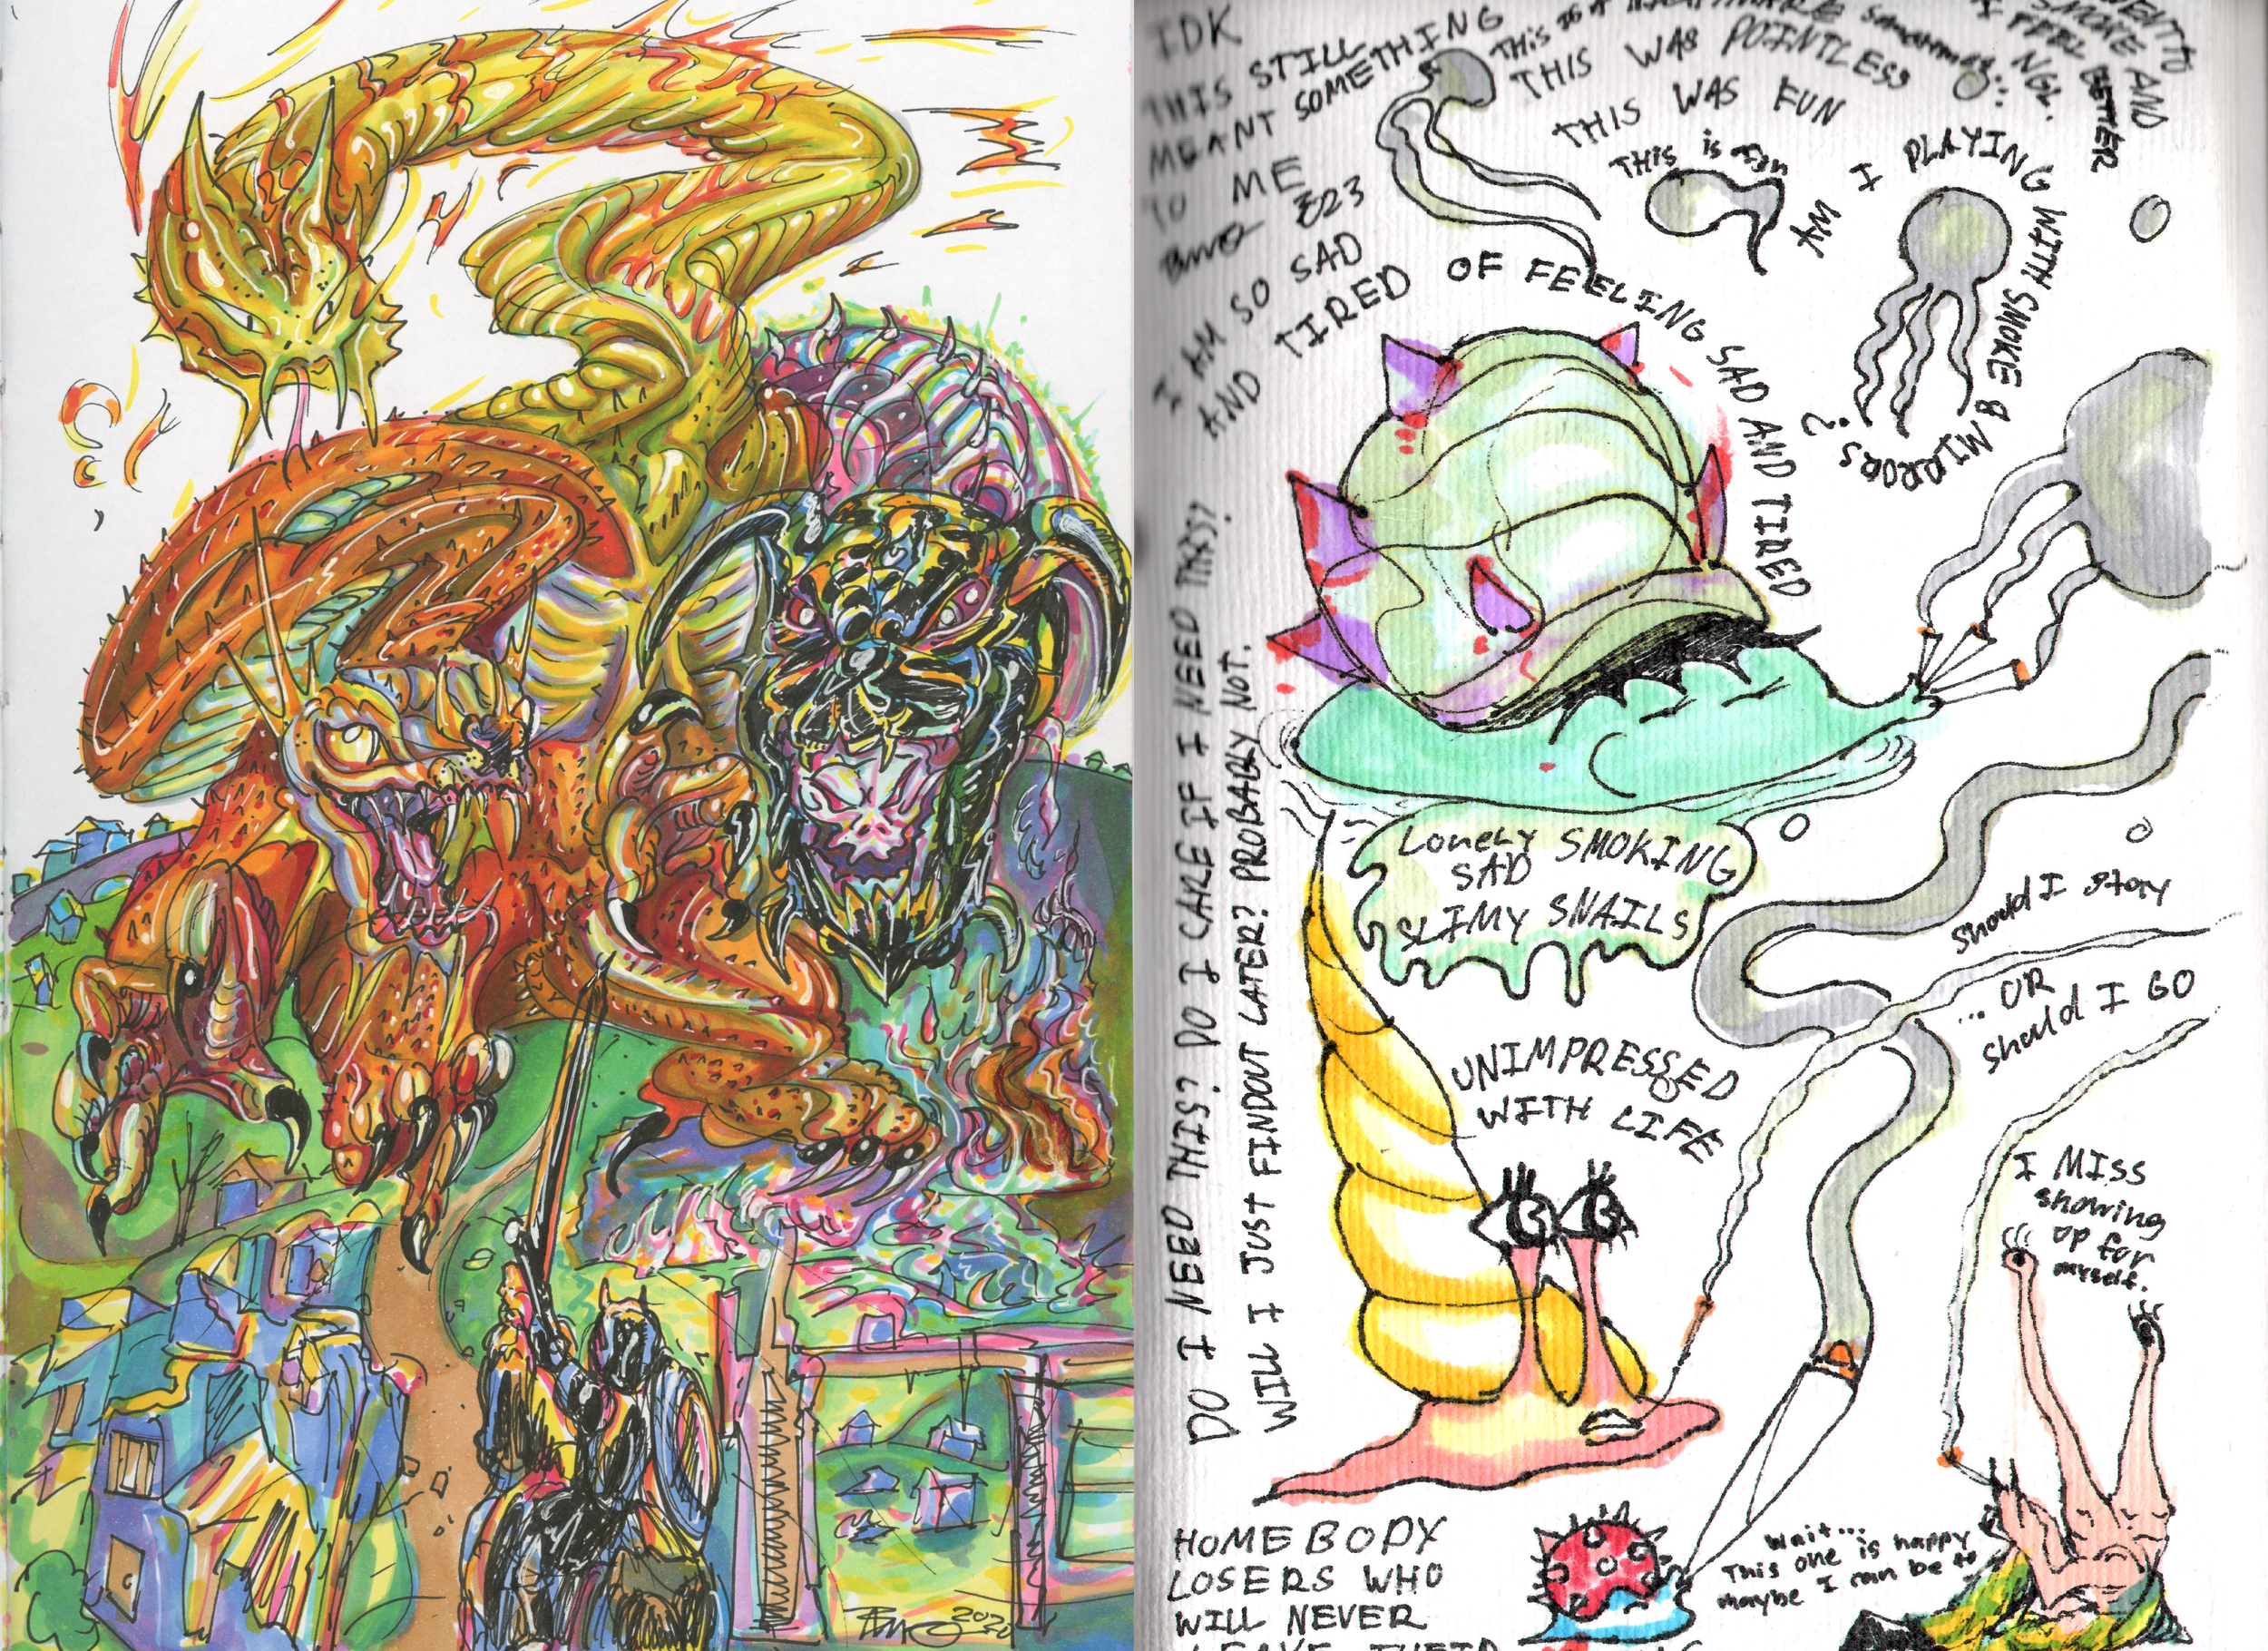 IDK
THIS STILL
MEANT SOMETHING
TO ME
I AM SO SAD
AND TIRED OF FEELING SAD AND TIRED
THIS WAS POINTLESS
THIS WAS FUN
This is fun
AM I PLAYING WITH SMOKE & MIRRORS?
SMOKE AND
I FEEL BETTER
DO I NEED THIS? DO I CARE IF I NEED THIS?
WILL I JUST FINDOUT LATER? PROBABLY NOT.
Lonely SMOKING
SAD
SLIMY SNAILS
should I stay
... OR
should I GO
UNIMPRESSED
WITH LIFE
I MISS
showing
up for
myself.
HOMEBODY
LOSERS WHO
WILL NEVER
LEAVE THEIR
Wait...
This one is happy
maybe I can be to
2020